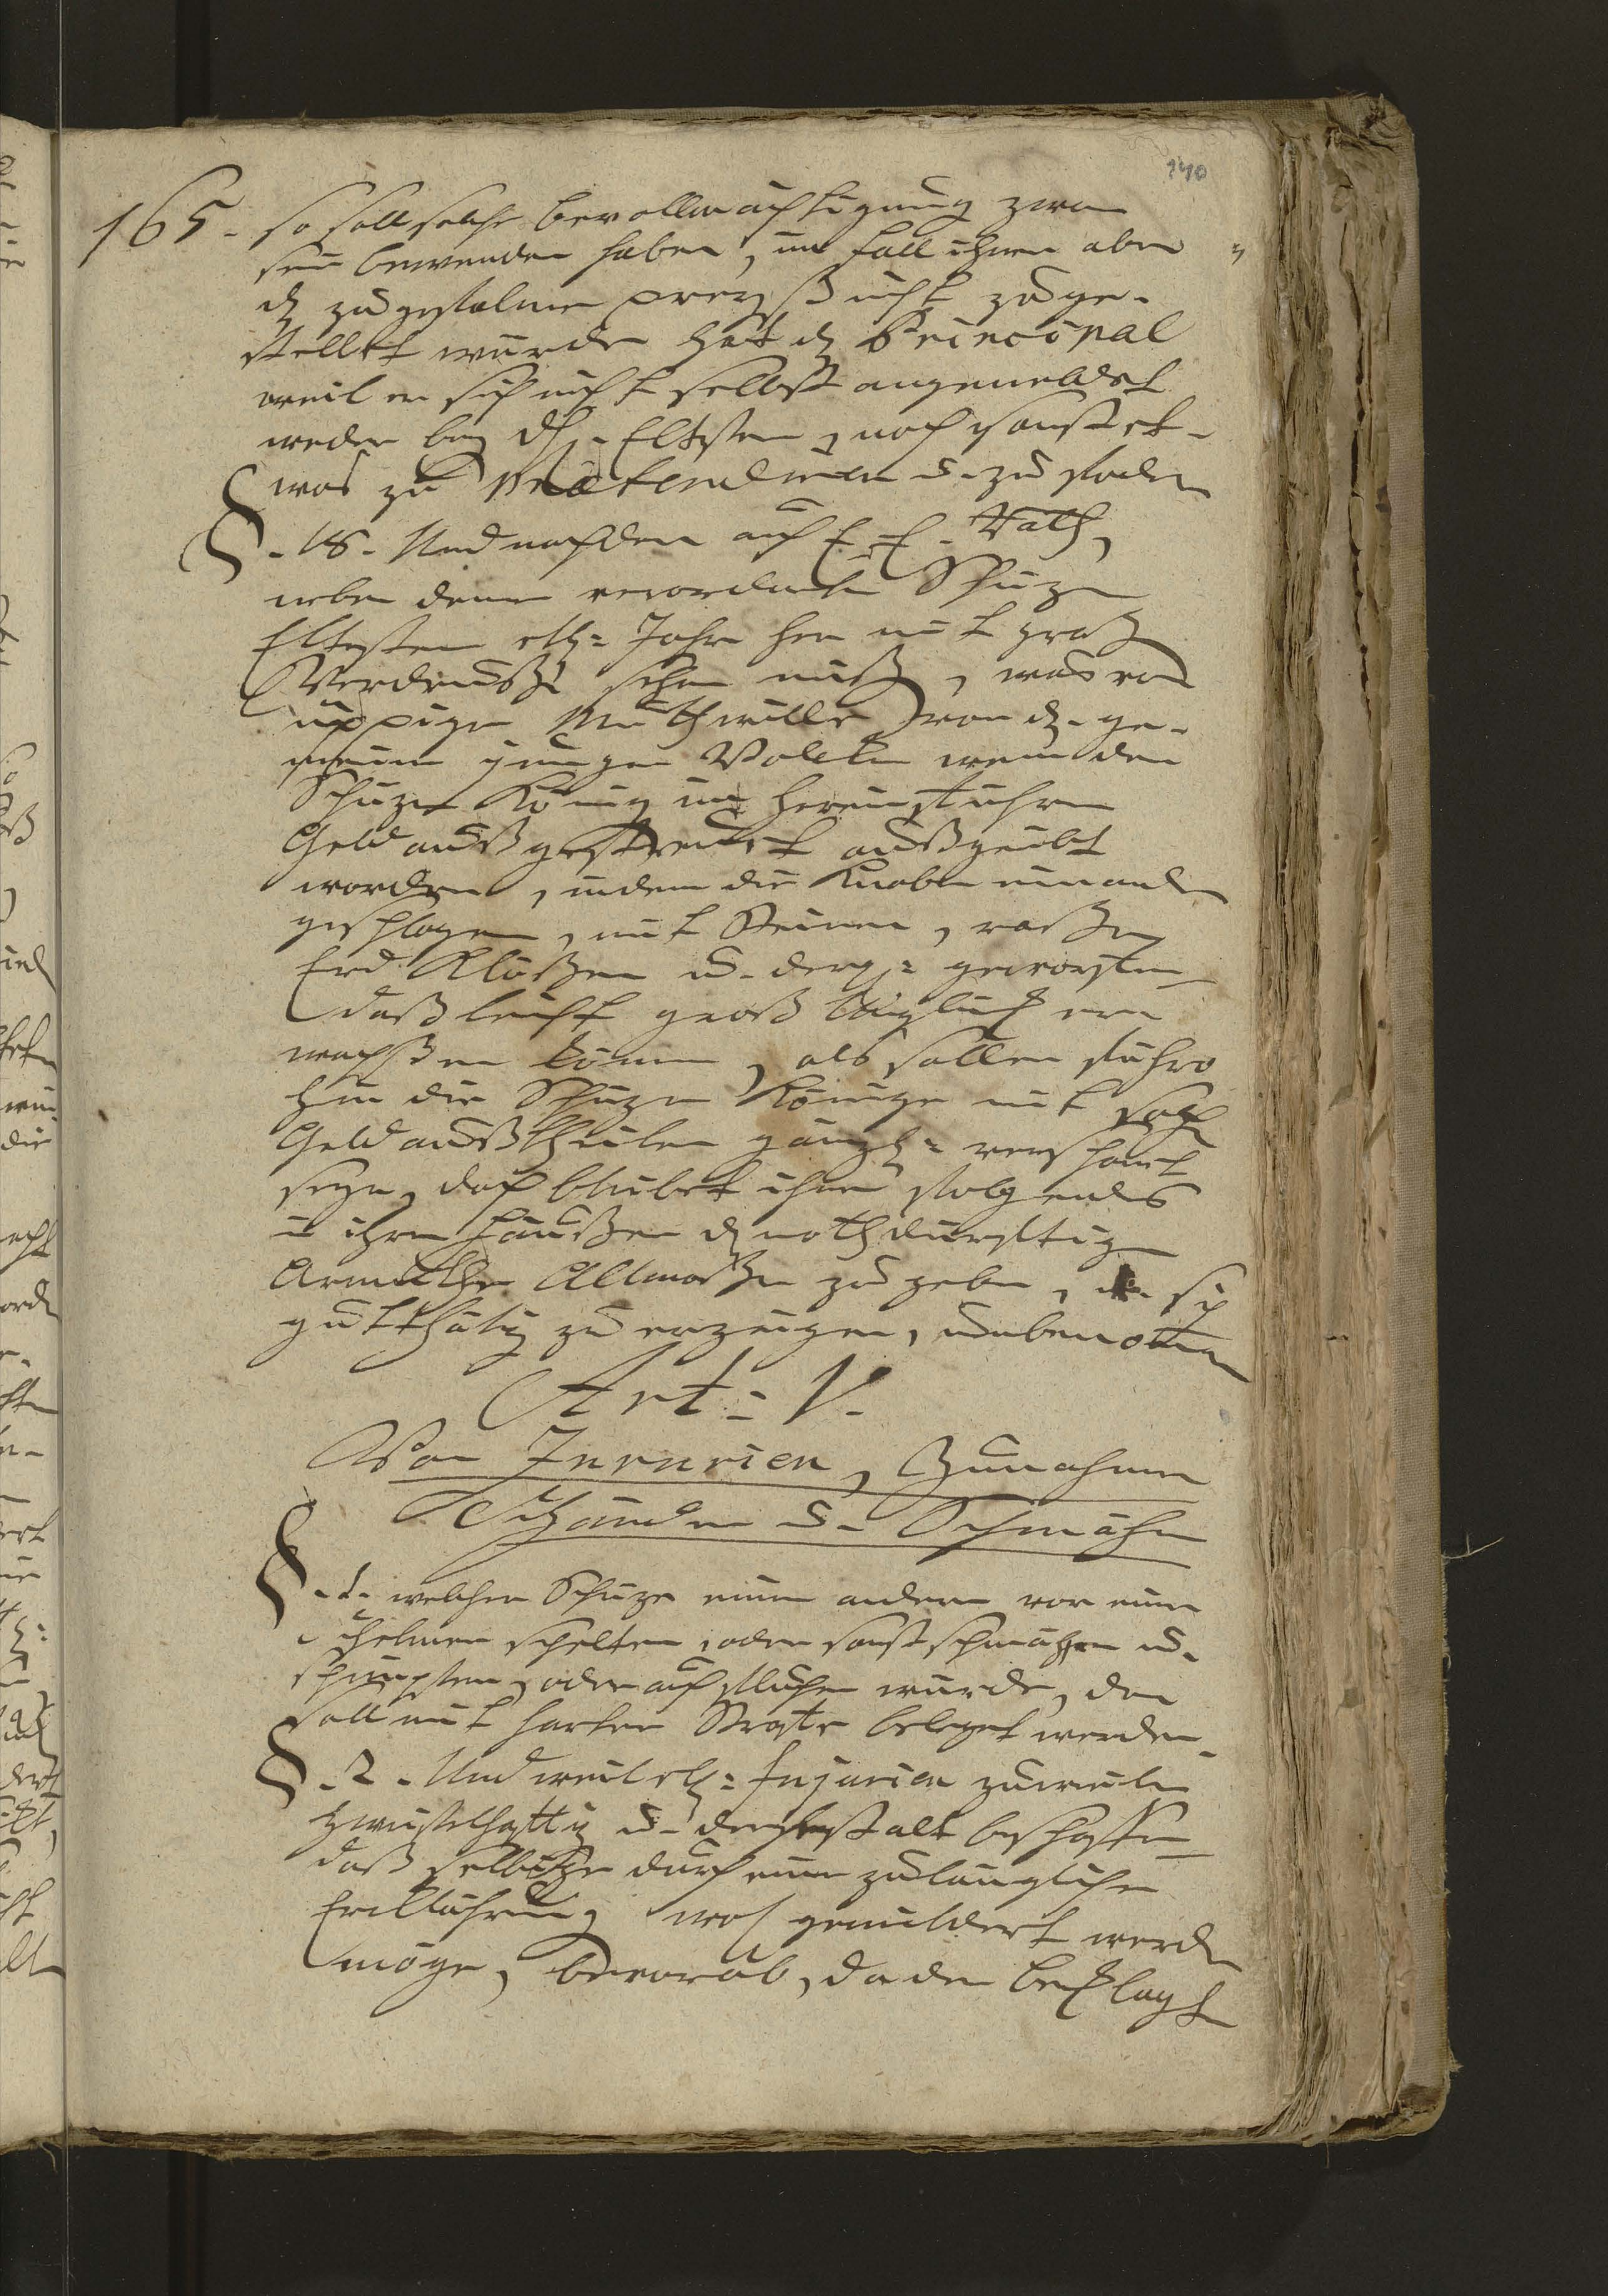 140
165. so soll solche bevollmächtigung zwar
sein bewenden haben, im fall ihnen aber
zugestalner preyß nicht zuge-
stellet würde hat d Principal
weil er sich nicht selbst angemeldet
weder bey d Eltesten, noch sonst et-
was zu praetendiren u. zu fodern
§. 18. Und nachdem auch E. E. Rath,
neben denen verordneten Schüzen
Eltesten etl: Jahr her mit groß
Verdruß sehen muß, was vor
üppiger Muthwille von d. ge-
meinen jungen Volckh wenn der
Schüzen König im hereinführen
Geld außgestreuet außgeübt
worden, indem die Knaben einander
geschlagen, mit Steinen, roßen
Erd Klößen u. derg: geworffen
daß leicht groß Unglück er-
wachßen können, als sollen führo
hin die Schüzen Könige mit solch
Geld außtheilen gänzl: verschont
seyn, doch bleibet ihnen folgends
in ihren Häußern d nothdürfftigen
Armuthe Allmoßen zu geben, u. sich
gutthätig zu erzeigen, unbenomen
Art: V.
Von Injurien, Zunahmen
Schänden u. Schmähen
§. 1. welcher Schüze einen andern vor einen
schelmen schelten, oder sonst schmähen u.
schimpffen, oder auch fluchen würde, der
soll mit harter Straffe beleget werden.
§. 2. Und weil etl: Injurien zuweilen
zweiffelhafftig u. dergestalt beschaffen
daß selbige durch eine zulängliche
Erklährung wol gemildert werden
möge, bevorab, da der beklagte